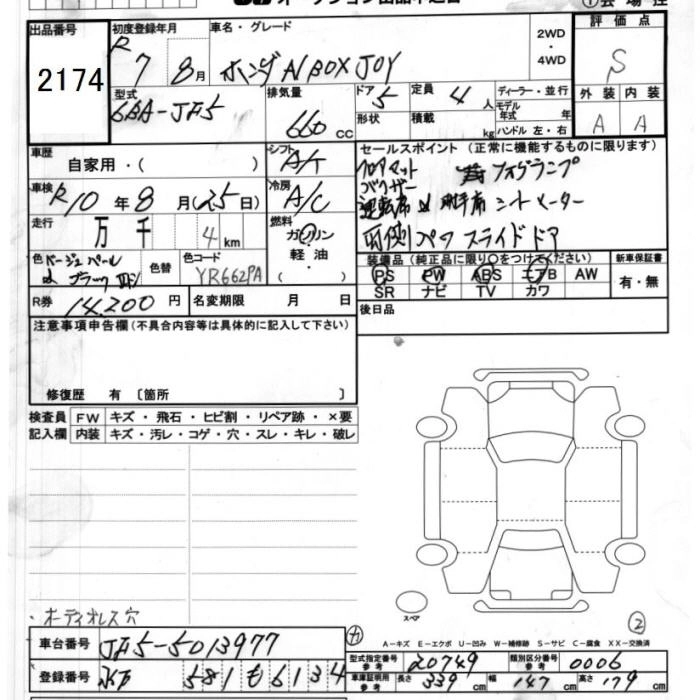 出品番号
2174
初度登録年月
R 7 8月
車名・グレード
ホンダ NBOX JOY
2WD
・
4WD
評価点
S
型式
6BA-JF5
排気量
660 cc
ドア
5
形状
定員
4 人
積載
kg
ディーラー・並行
モデル年式 年
ハンドル 左・右
外装 内装
A A
車歴
自家用・( )
シフト
A/T
セールスポイント (正常に機能するものに限ります)
フロアマット フォグランプ
バイザー
運転席 助手席 シートヒーター
両側パワースライドドア
車検
R10年8月(25日)
冷房
A/C
走行
万 千 4 km
燃料
ガソリン
軽油
・( )
色
ベージュパール
ブラック
色替
色コード
YR662PA
装備品 (純正品に限り○をつけてください)
PS PW ABS エアB AW
SR ナビ TV カワ
新車保証書
有・無
R券
14,200 円
名変期限 月 日
後日品
注意事項申告欄 (不具合内容等は具体的に記入して下さい)
修復歴 有 〔箇所 〕
検査員 FW キズ・飛石・ヒビ割・リペア跡・×要
記入欄 内装 キズ・汚レ・コゲ・穴・スレ・キレ・破レ
・オーディオレス穴
スペア
②
A－キズ E－エクボ U－凹み W－補修跡 S－サビ C－腐食 XX－交換済
車台番号
JF5-5013977
型式指定番号
参考
20749
類別区分番号
参考
0006
登録番号
581 も 6134
車庫証明用
参考
長さ 339 cm 幅 147 cm 高さ 179 cm